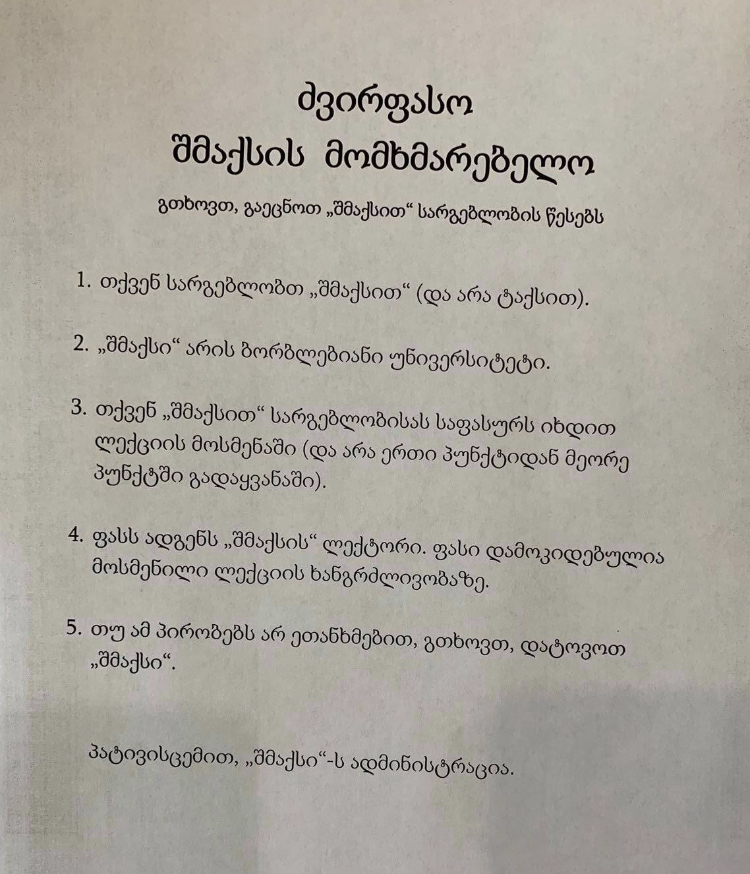 ძვირფასო
შმაქსის მომხმარებელო
გთხოვთ, გაეცნოთ „შმაქსით“ სარგებლობის წესებს
1. თქვენ სარგებლობთ „შმაქსით“ (და არა ტაქსით).
2. „შმაქსი“ არის ბორბლებიანი უნივერსიტეტი.
3. თქვენ „შმაქსით“ სარგებლობისას საფასურს იხდით
ლექციის მოსმენაში (და არა ერთი პუნქტიდან მეორე
პუნქტში გადაყვანაში).
4. ფასს ადგენს „შმაქსის“ ლექტორი. ფასი დამოკიდებულია
მოსმენილი ლექციის ხანგრძლივობაზე.
5. თუ ამ პირობებს არ ეთანხმებით, გთხოვთ, დატოვოთ
„შმაქსი“.
პატივისცემით, „შმაქსი“-ს ადმინისტრაცია.